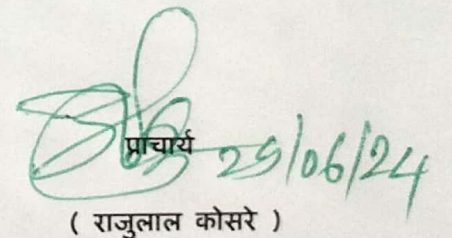 प्राचार्य 25/06/24
( राजुलाल कोसरे )